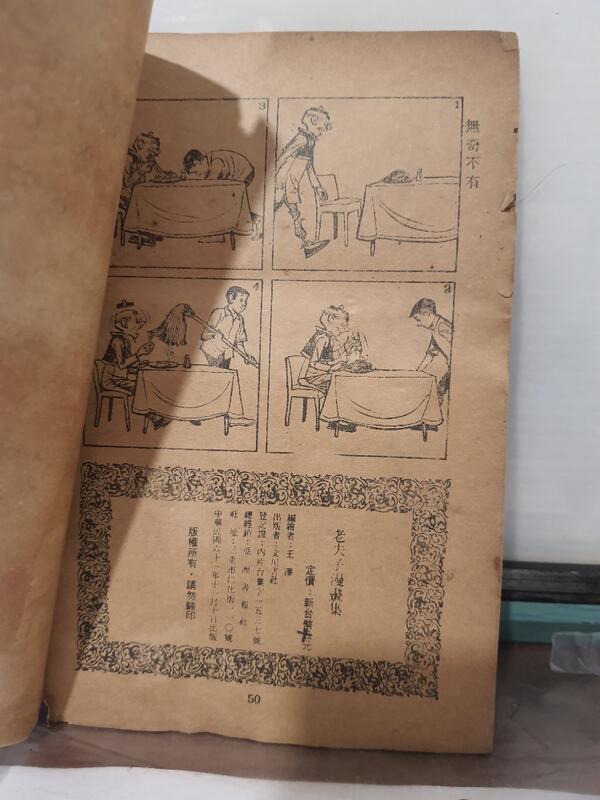 無奇不有
1
2
3
4
老夫子漫畫集
定價：新台幣 元
編繪者：王澤
出版者：文川書社
登記證：內片台業字一五三七號
總經銷：亞洲書報社
社址：三重市仁化街一一〇號
中華民國六十一年十一月十日出版
版權所有・請勿翻印
50